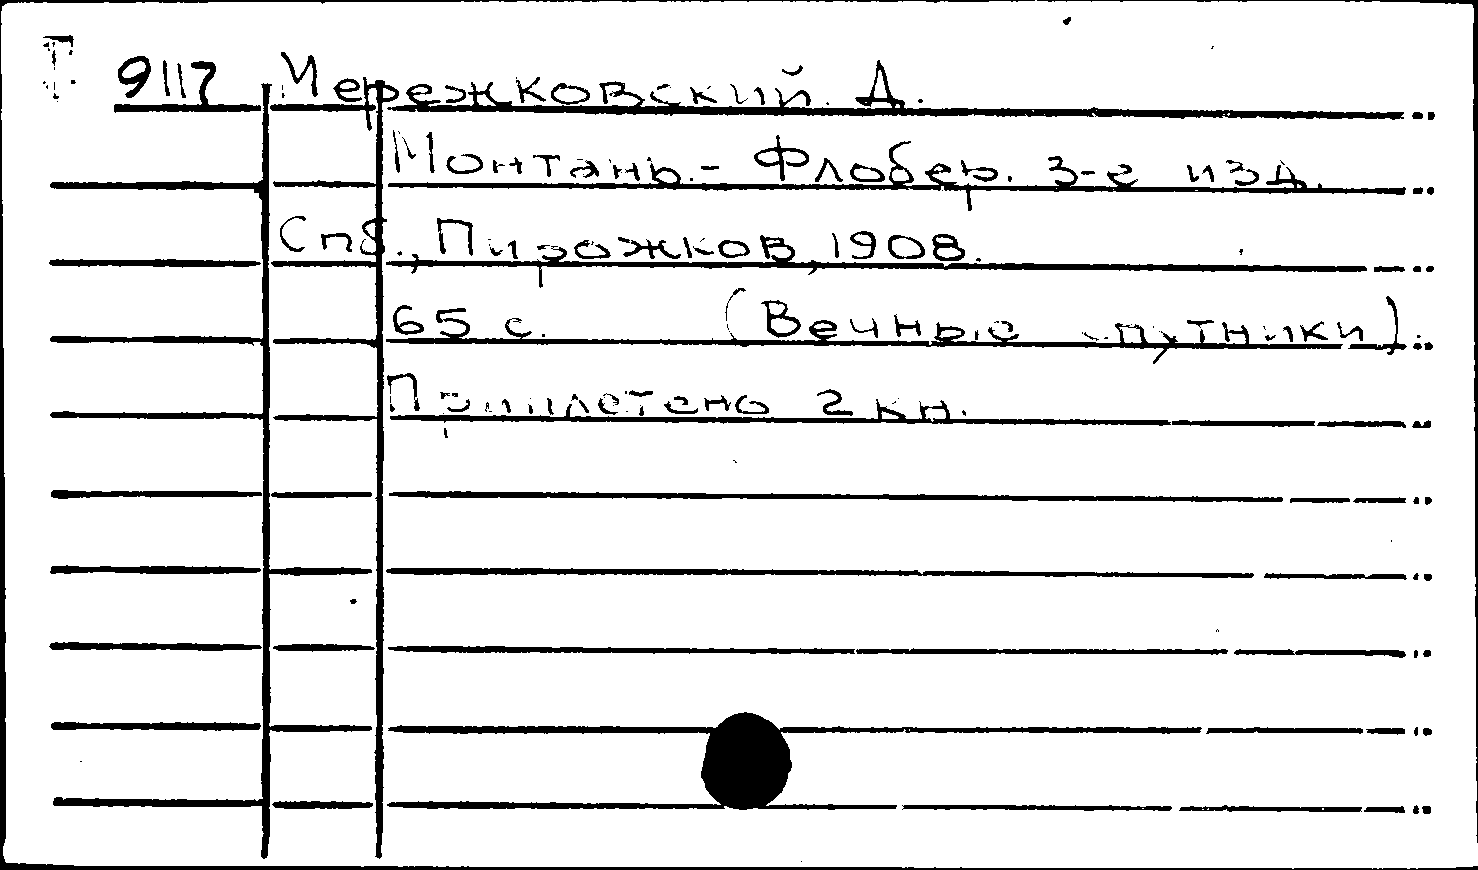 Г. 9117 Мережковский Д.
Монтань.- Флобер. 3-е изд.
Спб., Пирожков, 1908.
65 с. (Вечные спутники).
Приплетено 2 кн.